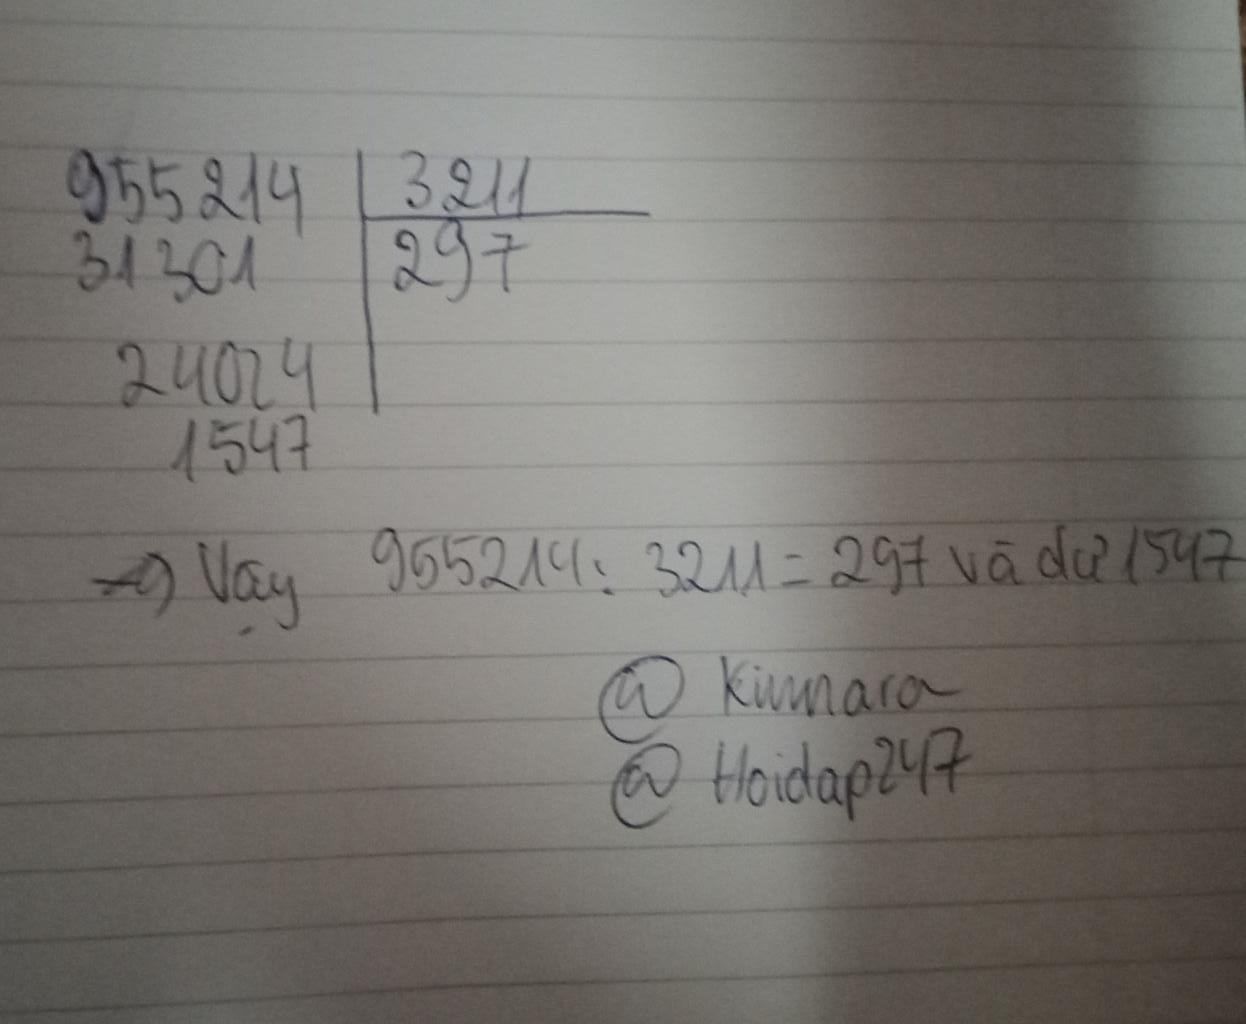 955214 | 3211
31301 | 297
24024
1547
→ Vậy 955214: 3211 = 297 và dư 1547
@ Kimnara
@ Hoidap247